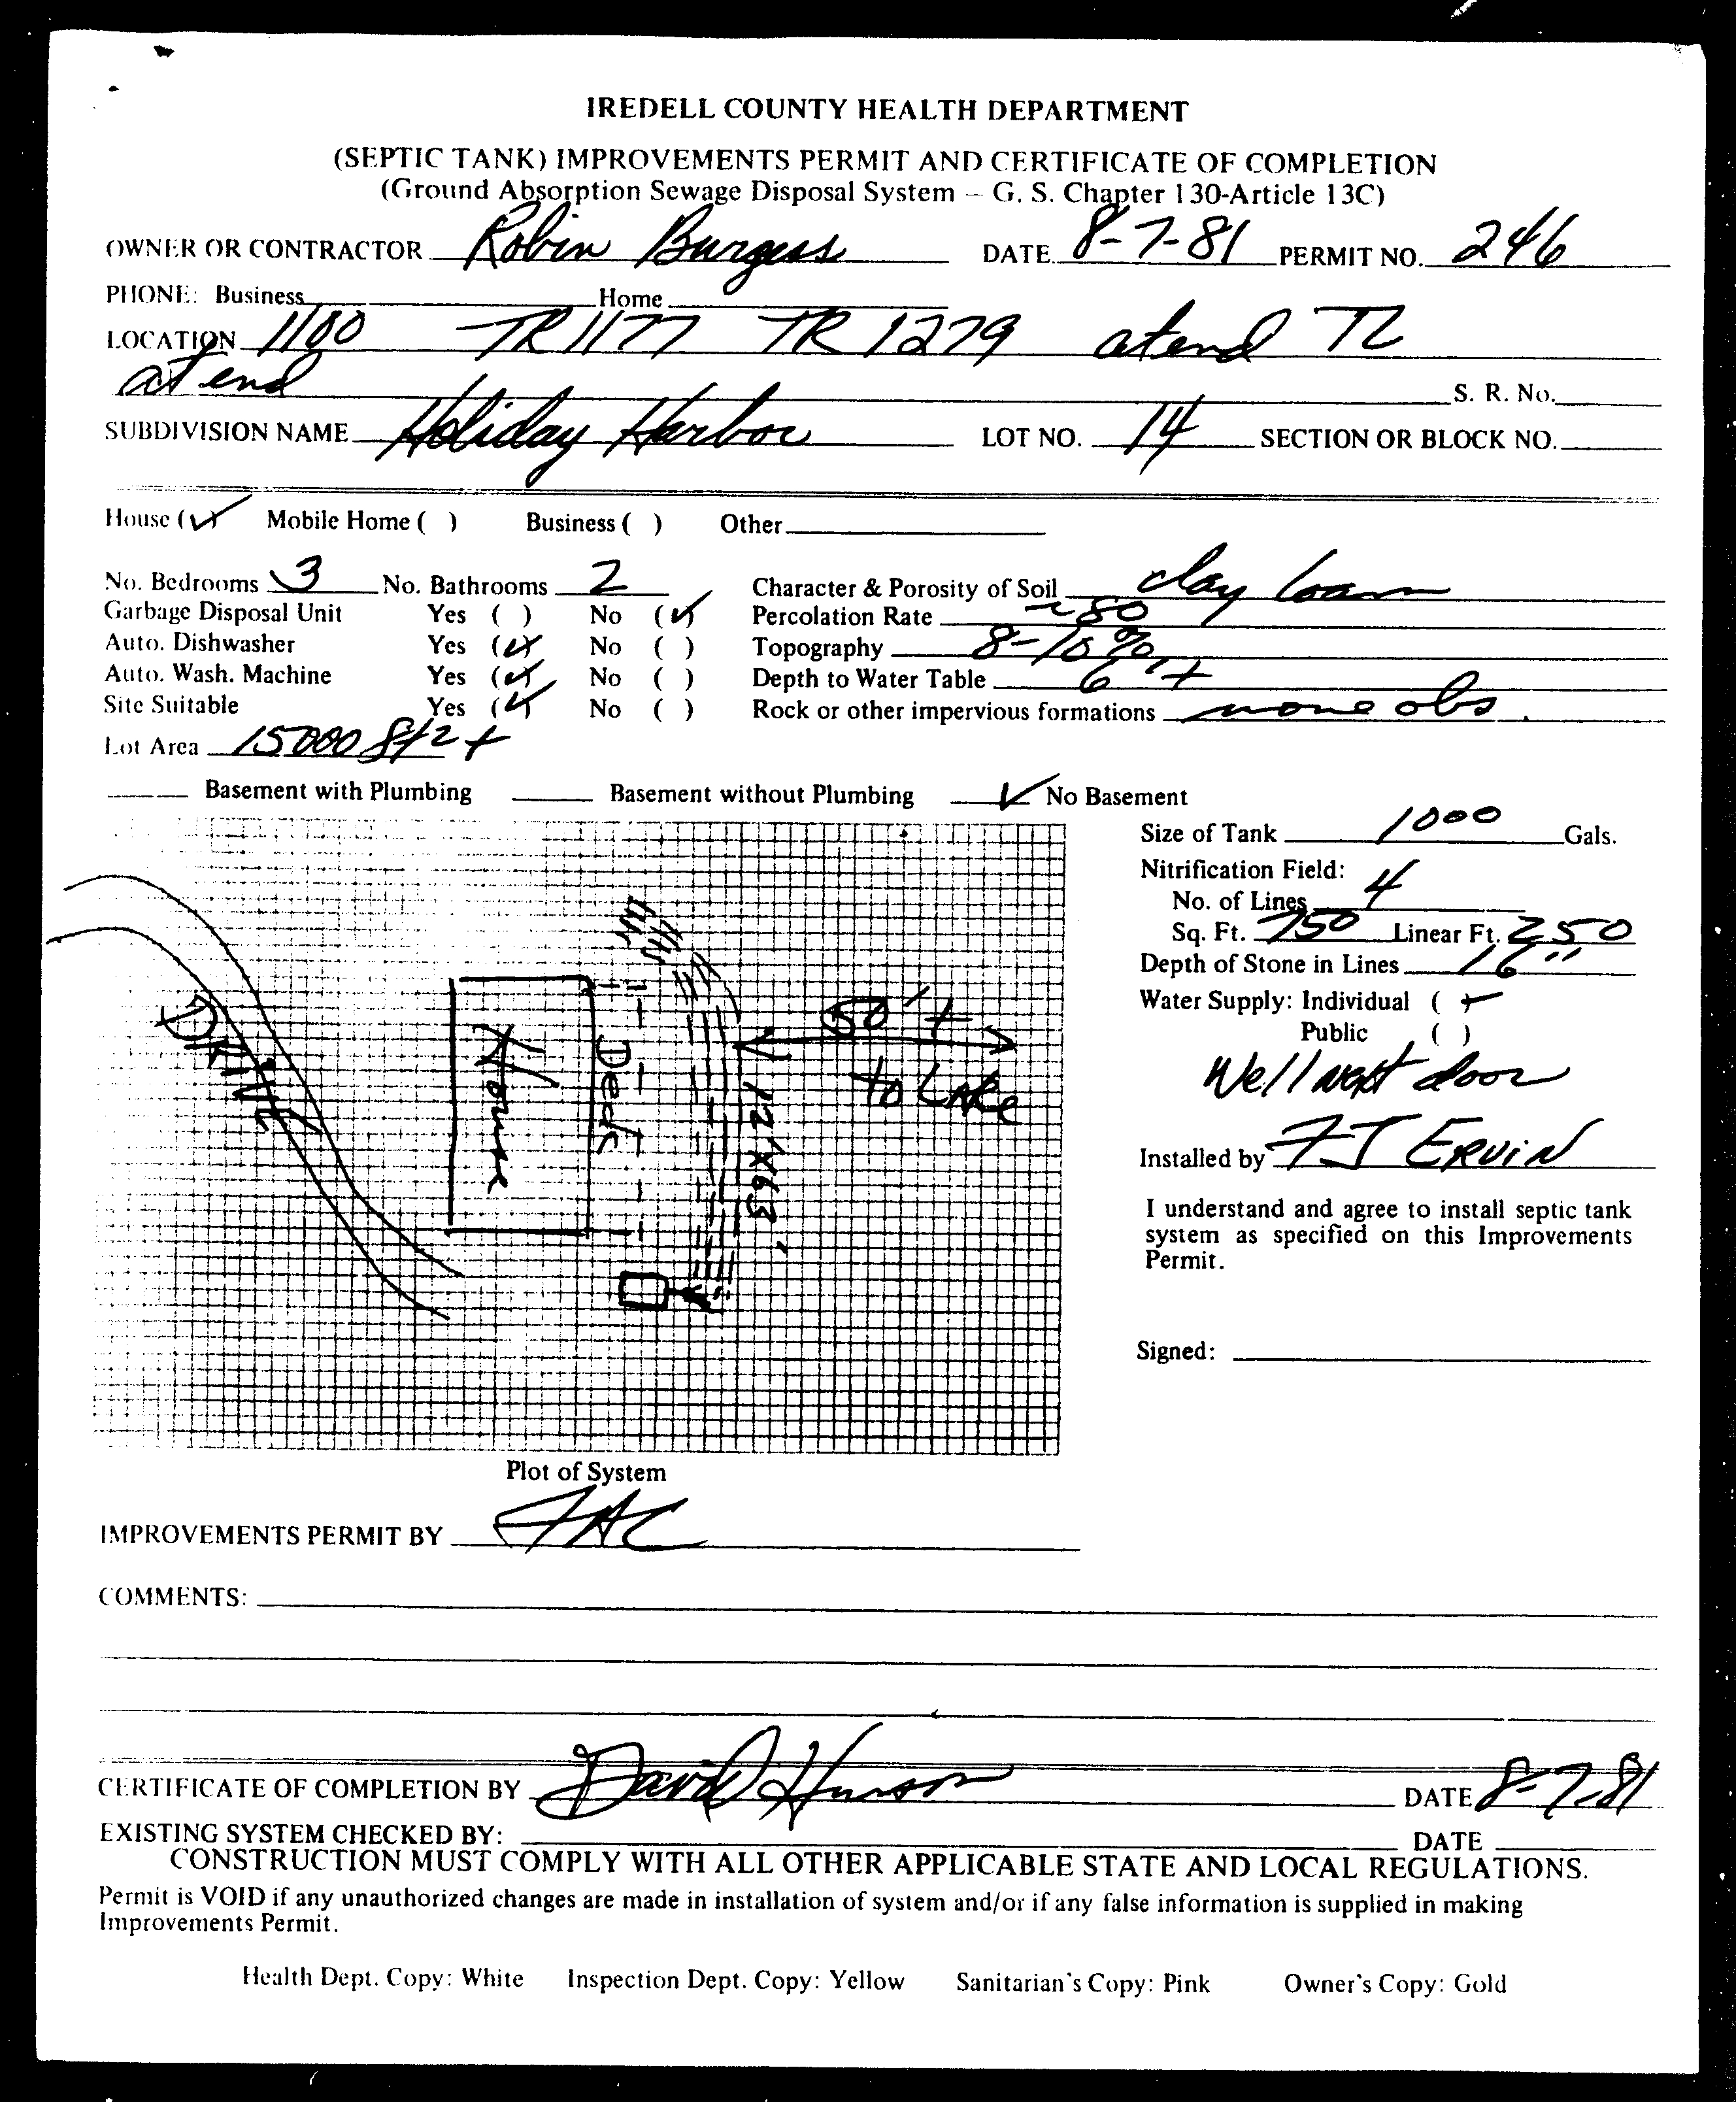 IREDELL COUNTY HEALTH DEPARTMENT
(SEPTIC TANK) IMPROVEMENTS PERMIT AND CERTIFICATE OF COMPLETION
(Ground Absorption Sewage Disposal System – G. S. Chapter 130-Article 13C)
OWNER OR CONTRACTOR Robin Burgess DATE 8-7-81 PERMIT NO. 246
PHONE: Business Home
LOCATION 1100 TR 1177 TR 1279 at end TL
at end S. R. No.
SUBDIVISION NAME Holiday Harbor LOT NO. 14 SECTION OR BLOCK NO.
House (✓) Mobile Home ( ) Business ( ) Other
No. Bedrooms 3 No. Bathrooms 2 Character & Porosity of Soil clay loam
Garbage Disposal Unit Yes ( ) No (✓) Percolation Rate ~80
Auto. Dishwasher Yes (✓) No ( ) Topography 8-10%
Auto. Wash. Machine Yes (✓) No ( ) Depth to Water Table 6'+
Site Suitable Yes (✓) No ( ) Rock or other impervious formations none obs.
Lot Area 15000 ft2 +
Basement with Plumbing Basement without Plumbing ✓ No Basement
Size of Tank 1000 Gals.
Nitrification Field:
No. of Lines 4
Sq. Ft. 750 Linear Ft. 250
Depth of Stone in Lines 16"
Water Supply: Individual (✓)
Public ( )
Well next door
Installed by FJ ERVIN
I understand and agree to install septic tank
system as specified on this Improvements
Permit.
Signed:
DRIVE
House
Deck
50'+
to Lake
Plot of System
IMPROVEMENTS PERMIT BY
COMMENTS:
CERTIFICATE OF COMPLETION BY David DATE 8-7-81
EXISTING SYSTEM CHECKED BY: DATE
CONSTRUCTION MUST COMPLY WITH ALL OTHER APPLICABLE STATE AND LOCAL REGULATIONS.
Permit is VOID if any unauthorized changes are made in installation of system and/or if any false information is supplied in making
Improvements Permit.
Health Dept. Copy: White Inspection Dept. Copy: Yellow Sanitarian's Copy: Pink Owner's Copy: Gold